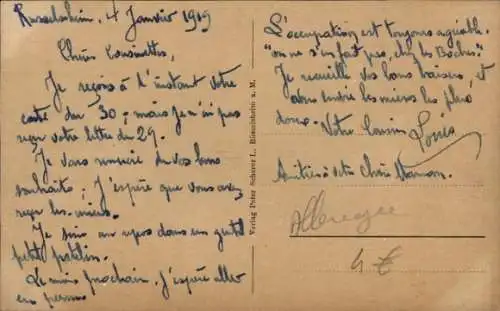 Russelsheim, 4 Janvier 1919
Chères Cousinettes,
Je reçois à l'instant votre
carte du 30 ; mais je n'ai pas
reçu votre lettre du 29.
Je vous remercie de vos bons
souhaits ; j'espère que vous avez
reçu les miens.
Je suis au repos dans un gentil
petit patelin.
Le mois prochain j'espère aller
en perme
L'occupation est toujours agréable.
"on ne s'en fait pas, chez les Boches".
Je recueille vos bons baisers, et
vous envoie les miens les plus
doux.
Votre cousin Louis
Amitiés à votre Chère Maman.
Allemagne
4 €
Verlag Peter Scherer I., Rüsselsheim a. M.